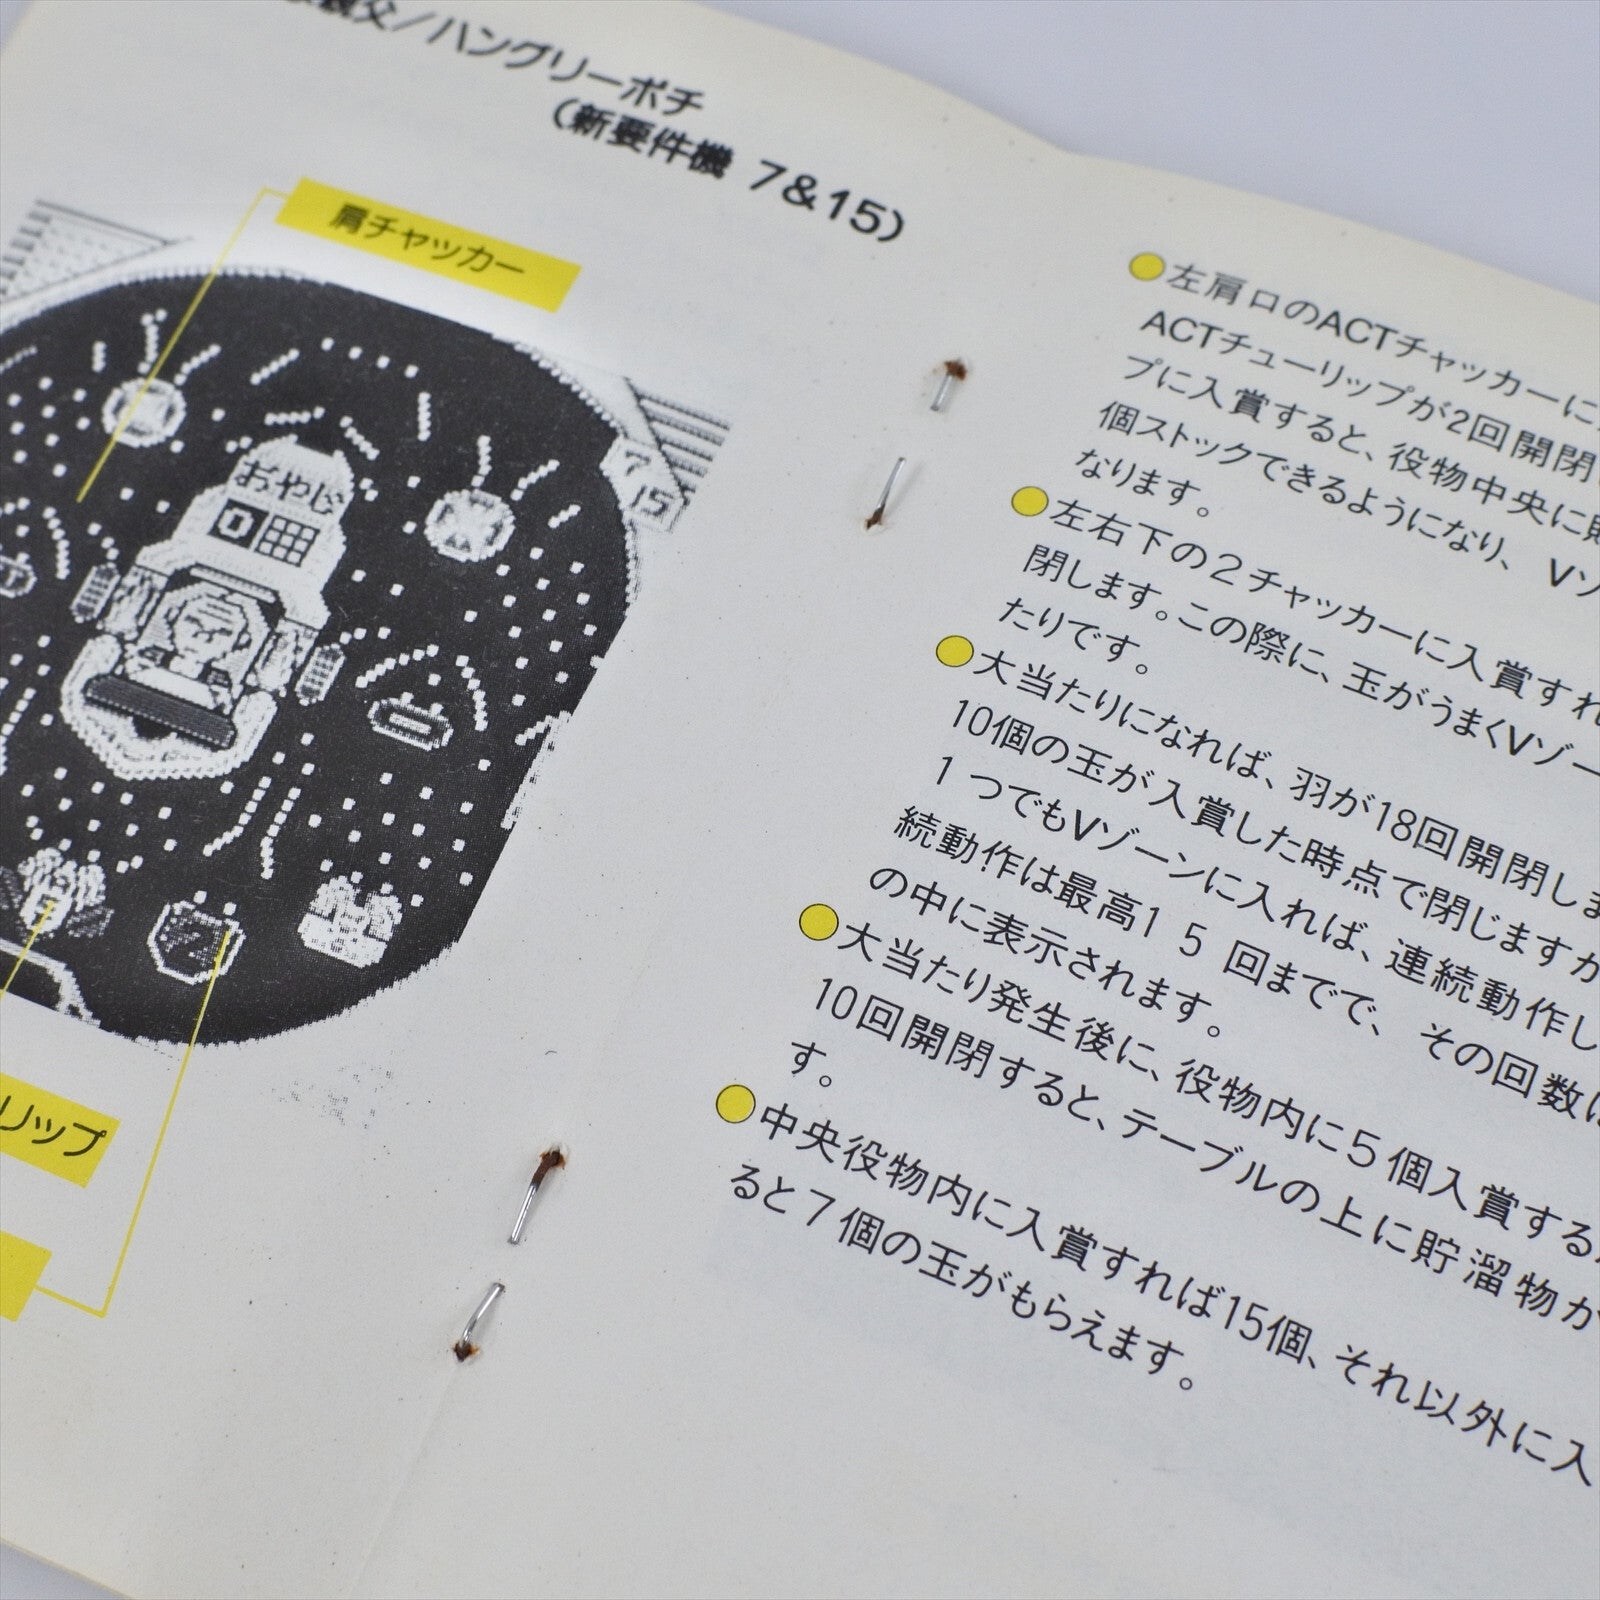 親父／ハングリーポチ
（新要件機 7&15）
肩チャッカー
おやじ
0
7
15
2
リップ
●左肩口のACTチャッカーに
ACTチューリップが2回開閉
プに入賞すると、役物中央に貯
個ストックできるようになり、Vゾ
なります。
●左右下の２チャッカーに入賞すれ
閉します。この際に、玉がうまくVゾー
たりです。
●大当たりになれば、羽が18回開閉しま
10個の玉が入賞した時点で閉じますが
１つでもVゾーンに入れば、連続動作し
続動作は最高１５回までで、その回数は
の中に表示されます。
●大当たり発生後に、役物内に５個入賞するか
10回開閉すると、テーブルの上に貯溜物が
す。
●中央役物内に入賞すれば15個、それ以外に入
ると７個の玉がもらえます。